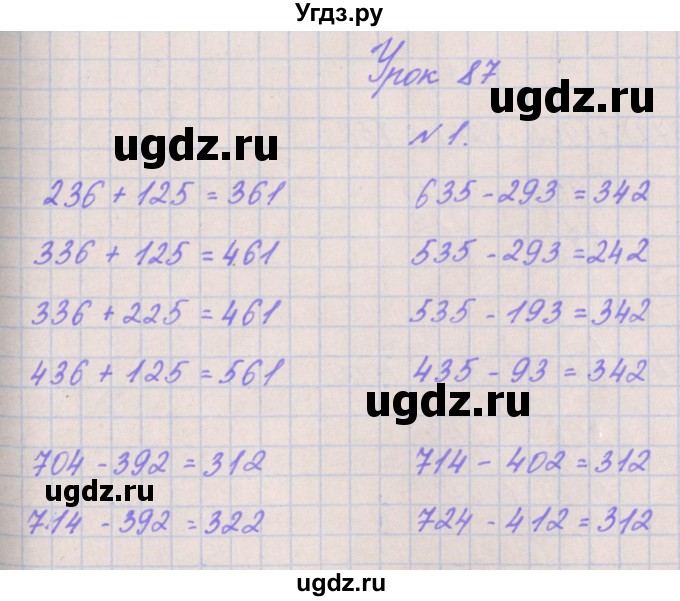 Угдз.ру
Урок 87
ugdz.ru
ugdz.ru
№ 1.
236 + 125 = 361
635 - 293 = 342
336 + 125 = 461
535 - 293 = 242
336 + 225 = 461
535 - 193 = 342
436 + 125 = 561
435 - 93 = 342
ugdz.ru
704 - 392 = 312
714 - 402 = 312
ugdz.ru
714 - 392 = 322
724 - 412 = 312
ugdz.ru